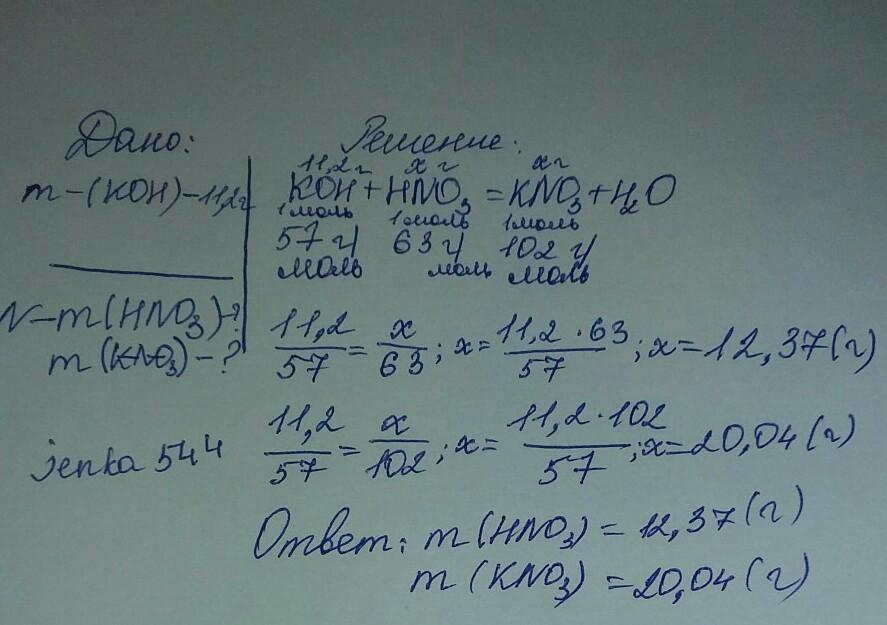 Дано:
m-(KOH)-11,2г
N-m(HNO₃)-?
m(KNO₃)-?
jenka 544
Решение:
11,2г x г x г
KOH+HNO₃=KNO₃+H₂O
1моль 1моль 1моль
57 г/ 63 г/ 102 г/
моль моль моль
11,2/57=x/63; x=11,2·63/57; x=12,37(г)
11,2/57=x/102; x=11,2·102/57; x=20,04(г)
Ответ: m(HNO₃)=12,37(г)
m(KNO₃)=20,04(г)